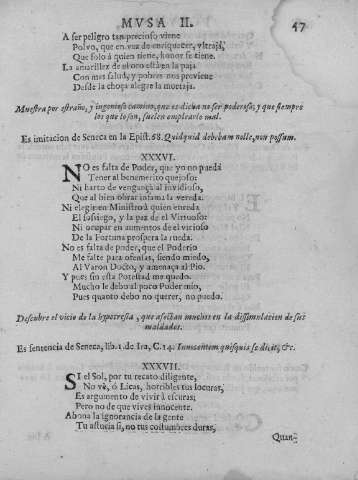 MVSA II. 47
A ser peligro tan precioso viene
Polvo, que en vez de enriquecer, vltraja,
Que solo á quien tiene, honor se tiene.
La amarillez de el oro está en la paja
Con mas salud, y pobres nos previene
Desde la choça alegre la mortaja.
Muestra por estraño, y ingenioso camino, que es dicha no ser poderoso, y que siempre
los que lo son, suelen emplearlo mal.
Es imitacion de Seneca en la Epist. 68. Quidquid debebam nolle, non possum.
XXXVI.
NO es falta de Poder, que yo no pueda
Tener al benemerito quejoso:
Ni harto de vengança al invidioso,
Que al bien obrar infama la vereda.
Ni elegir en Ministro à quien
El sossiego, y la paz de el Virtuoso:
Ni ocupar en aumentos de el vicioso
De la Fortuna prospera la rueda.
No es falta de poder, que el Poderio
Me falte para ofensas, siendo miedo,
Al Varon Docto, y amenaça al Pio.
Y pues sin esta Potestad me quedo
Mucho le debo al poco Poder mio,
Pues quanto debo no querer, no puedo.
Descubre el vicio de la hypocresia, que afectan muchos en la dissimulacion de sus
maldades.
Es sentencia de Seneca, lib. 1. de Ira, C. 14. Innocentem quisquis se dicit, &c.
XXXVII.
SI el Sol, por tu recato diligente,
No vè, ó Licas, horribles tus locuras,
Es argumento de vivir à escuras;
Pero no de que vives innocente.
Abona la ignorancia de la gente
Tu astucia si, no tus costumbres duras,
Quan-